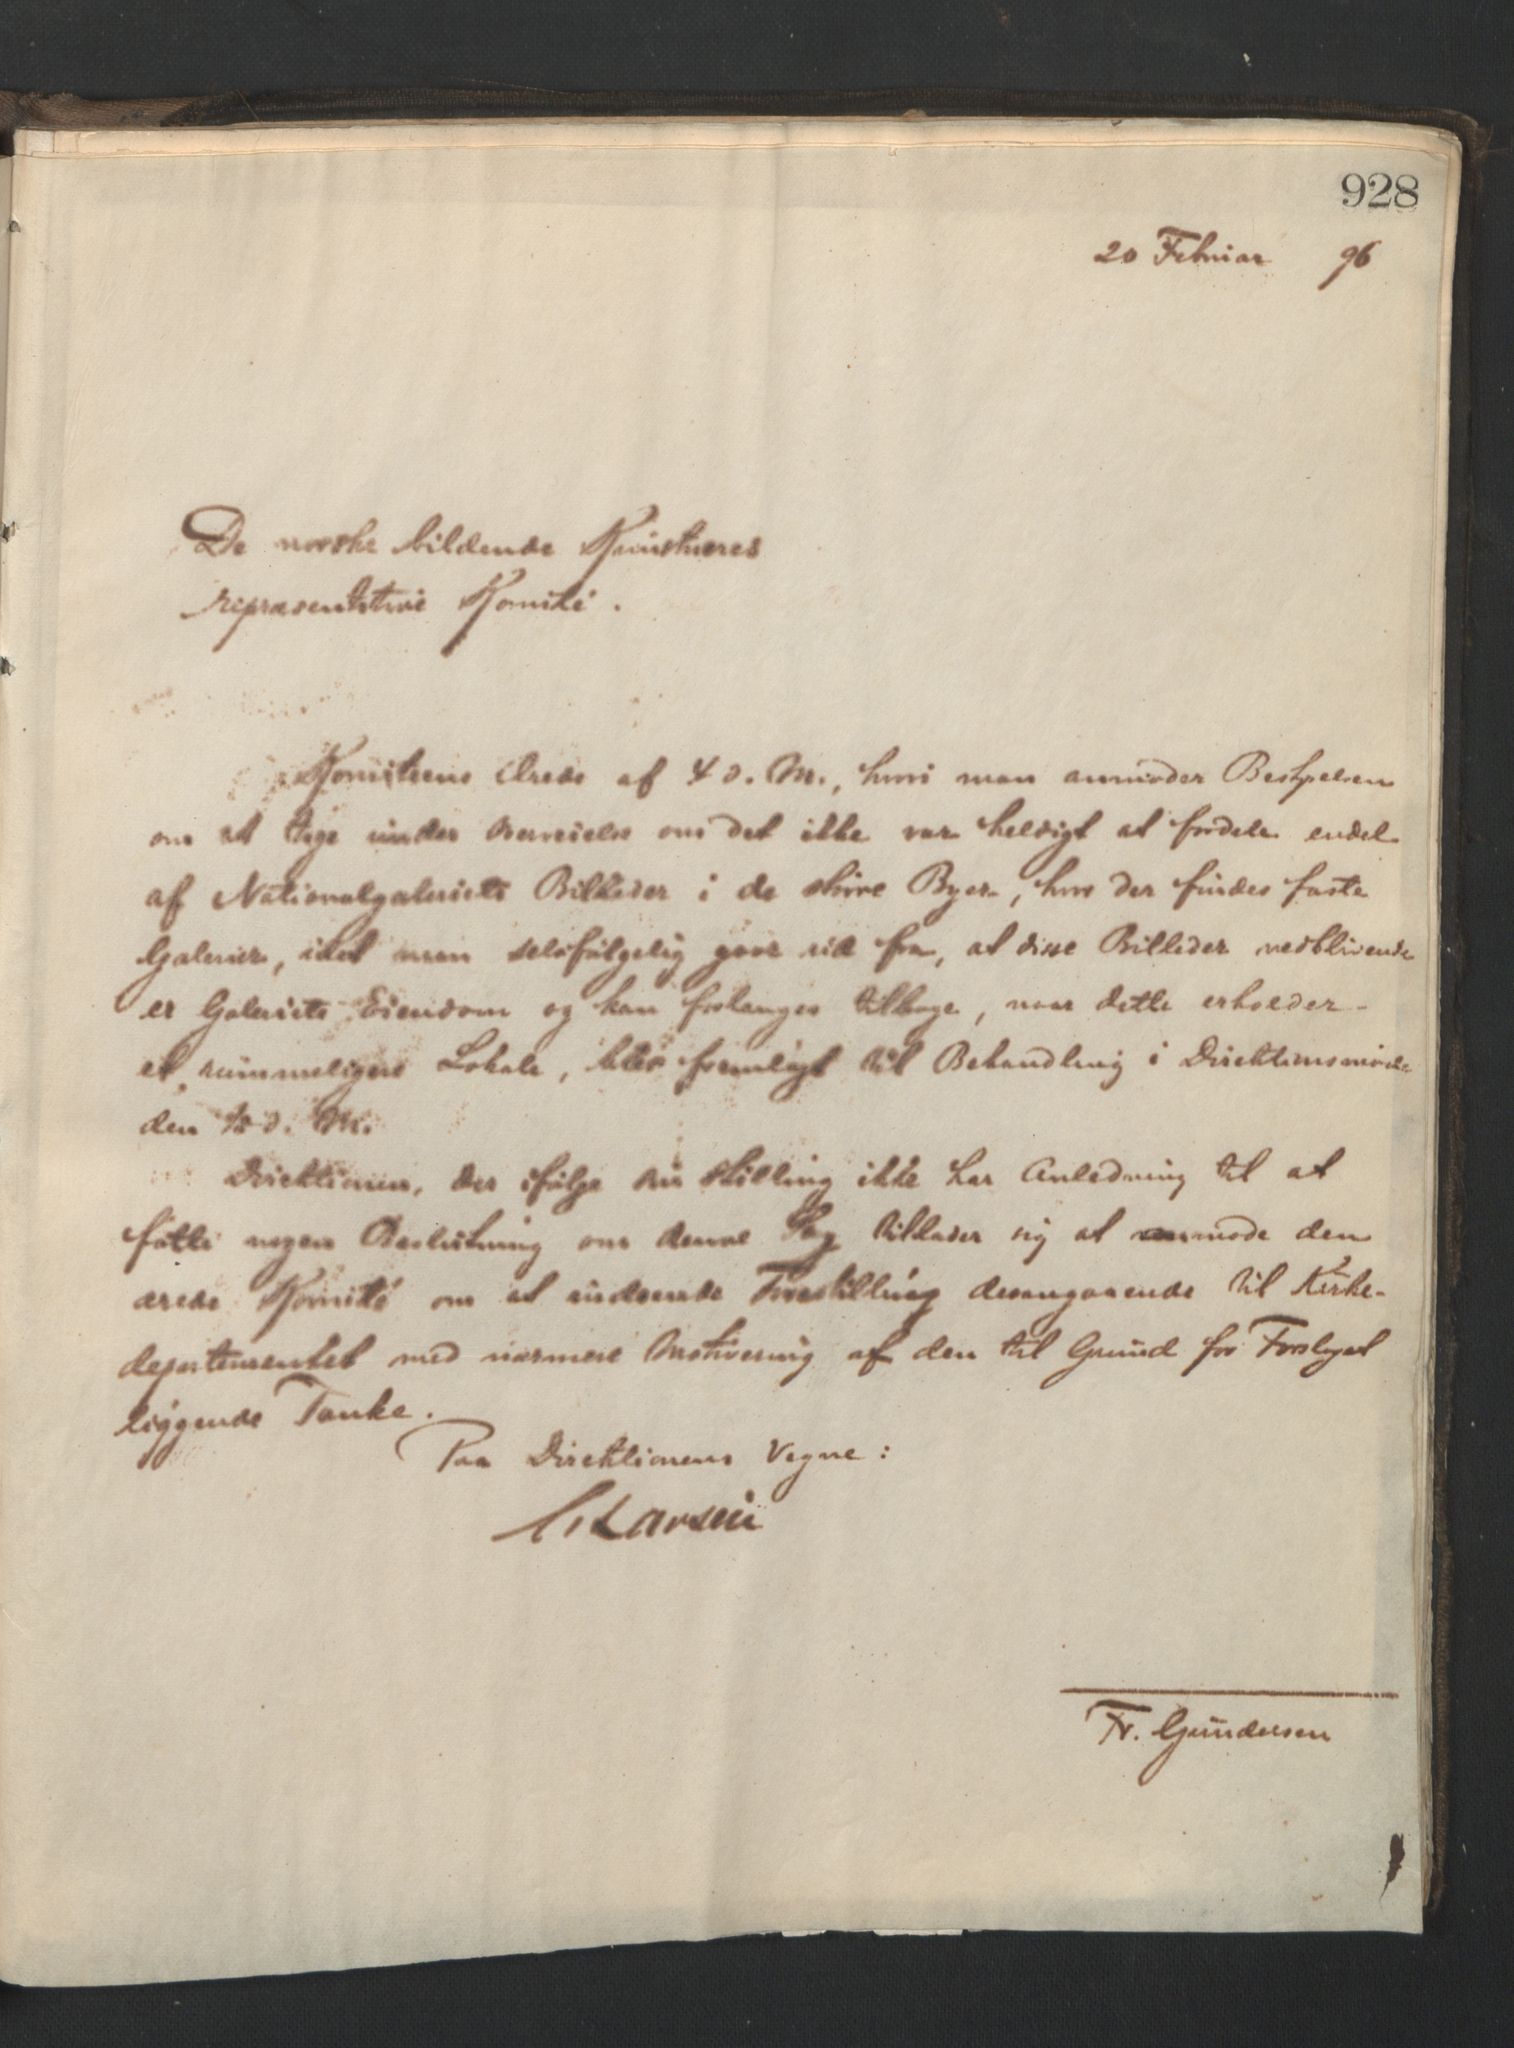 928
20 Februar 96
De norske bildende Kunstneres
repræsentative Komité.
Komiteens ærede af 4 d. M., hvori man anmoder Bestyrelsen
om at tage under Overveielse om det ikke var heldigt at fordele endel
af Nationalgaleriets Billeder i de større Byer, hvor der findes faste
Galerier, idet man selvfølgelig gaar ud fra, at disse Billeder vedblivende
er Galeriets Eiendom og kan forlanges tilbage, naar dette erholder
et rummeligere Lokale, blev fremlagt til Behandling i Direktionsmøde
den d. M.
Direktionen, der ifølge sin Stilling ikke har Anledning til at
fatte nogen Beslutning om denne Sag tillader sig at anmode den
ærede Komité om at indsende Forestilling desangaaende til Kirke-
departementet med nærmere Motivering af den til Grund for Forslaget
liggende Tanke.
Paa Direktionens Vegne:
Larsen
Fr. Gundersen